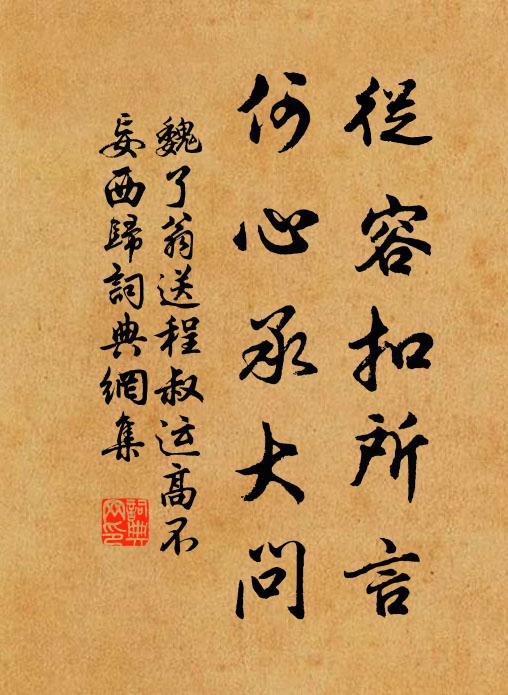 從容扣所言
何心承大問
魏了翁送程叔运高不
妄西歸詞典網集
詞典
网印